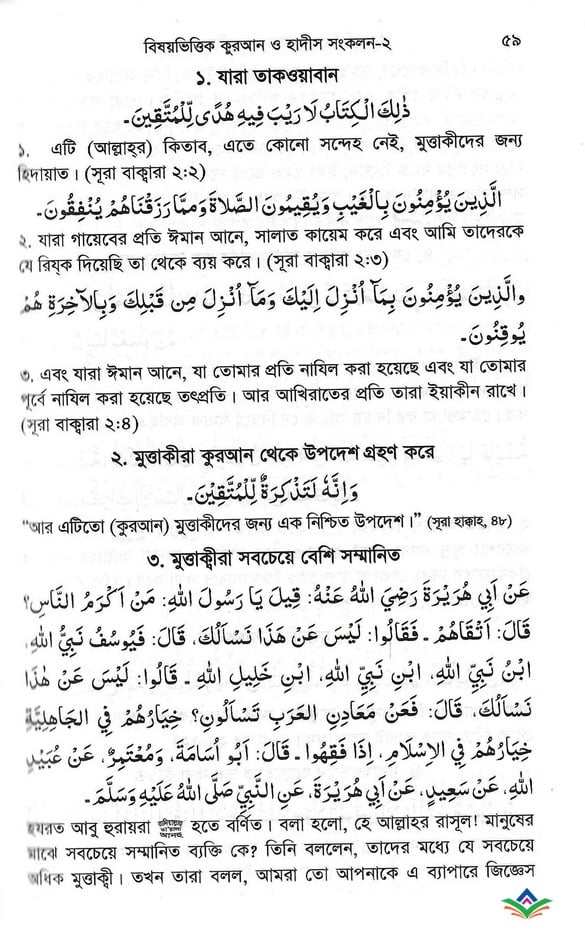 বিষয়ভিত্তিক কুরআন ও হাদীস সংকলন-২ ৫৯
১. যারা তাকওয়াবান
ذٰلِكَ الْكِتَابُ لَا رَيْبَ فِيهِ هُدًى لِّلْمُتَّقِينَ-
১. এটি (আল্লাহ্‌র) কিতাব, এতে কোনো সন্দেহ নেই, মুত্তাকীদের জন্য
হিদায়াত। (সূরা বাক্বারা ২:২)
الَّذِينَ يُؤْمِنُونَ بِالْغَيْبِ وَيُقِيمُونَ الصَّلَاةَ وَمِمَّا رَزَقْنَاهُمْ يُنْفِقُونَ-
২. যারা গায়েবের প্রতি ঈমান আনে, সালাত কায়েম করে এবং আমি তাদেরকে
যে রিয্‌ক দিয়েছি তা থেকে ব্যয় করে। (সূরা বাক্বারা ২:৩)
والَّذِينَ يُؤْمِنُونَ بِمَآ اُنْزِلَ إِلَيْكَ وَمَآ اُنْزِلَ مِن قَبْلِكَ وَبِالْآخِرَةِ هُمْ
يُوقِنُونَ-
৩. এবং যারা ঈমান আনে, যা তোমার প্রতি নাযিল করা হয়েছে এবং যা তোমার
পূর্বে নাযিল করা হয়েছে তৎপ্রতি। আর আখিরাতের প্রতি তারা ইয়াকীন রাখে।
(সূরা বাক্বারা ২:৪)
২. মুত্তাকীরা কুরআন থেকে উপদেশ গ্রহণ করে
وَاِنَّهٗ لَتَذْكِرَةٌ لِّلْمُتَّقِيْنَ-
“আর এটিতো (কুরআন) মুত্তাকীদের জন্য এক নিশ্চিত উপদেশ।” (সূরা হাক্কাহ, ৪৮)
৩. মুত্তাক্বীরা সবচেয়ে বেশি সম্মানিত
عَنْ أَبِي هُرَيْرَةَ رَضِيَ اللهُ عَنْهُ: قِيلَ يَا رَسُولَ اللهِ: مَنْ اَكْرَمُ النَّاسِ؟
قَالَ: اَتْقَاهُمْ - فَقَالُوا: لَيْسَ عَنْ هَذَا نَسْأَلُكَ، قَالَ: فَيُوسُفُ نَبِيُّ اللهِ،
ابْنُ نَبِيِّ اللهِ، ابْنِ نَبِيِّ اللهِ، ابْنِ خَلِيلِ اللهِ - قَالُوا: لَيْسَ عَنْ هٰذَا
نَسْأَلُكَ، قَالَ: فَعَنْ مَعَادِنِ الْعَرَبِ تَسْأَلُونِ؟ خِيَارُهُمْ فِي الْجَاهِلِيَّةِ
خِيَارُهُمْ فِي الْاِسْلَامِ، اِذَا فَقِهُوا - قَالَ: اَبُو أُسَامَةَ، وَمُعْتَمِرٌ، عَنْ عُبَيْدِ
اللهِ، عَنْ سَعِيدٍ، عَنْ اَبِي هُرَيْرَةَ، عَنِ النَّبِيِّ صَلَّى اللهُ عَلَيْهِ وَسَلَّمَ-
হযরত আবু হুরায়রা হতে বর্ণিত। বলা হলো, হে আল্লাহর রাসূল! মানুষের
মাঝে সবচেয়ে সম্মানিত ব্যক্তি কে? তিনি বললেন, তাদের মধ্যে যে সবচেয়ে
অধিক মুত্তাকী। তখন তারা বলল, আমরা তো আপনাকে এ ব্যাপারে জিজ্ঞেস